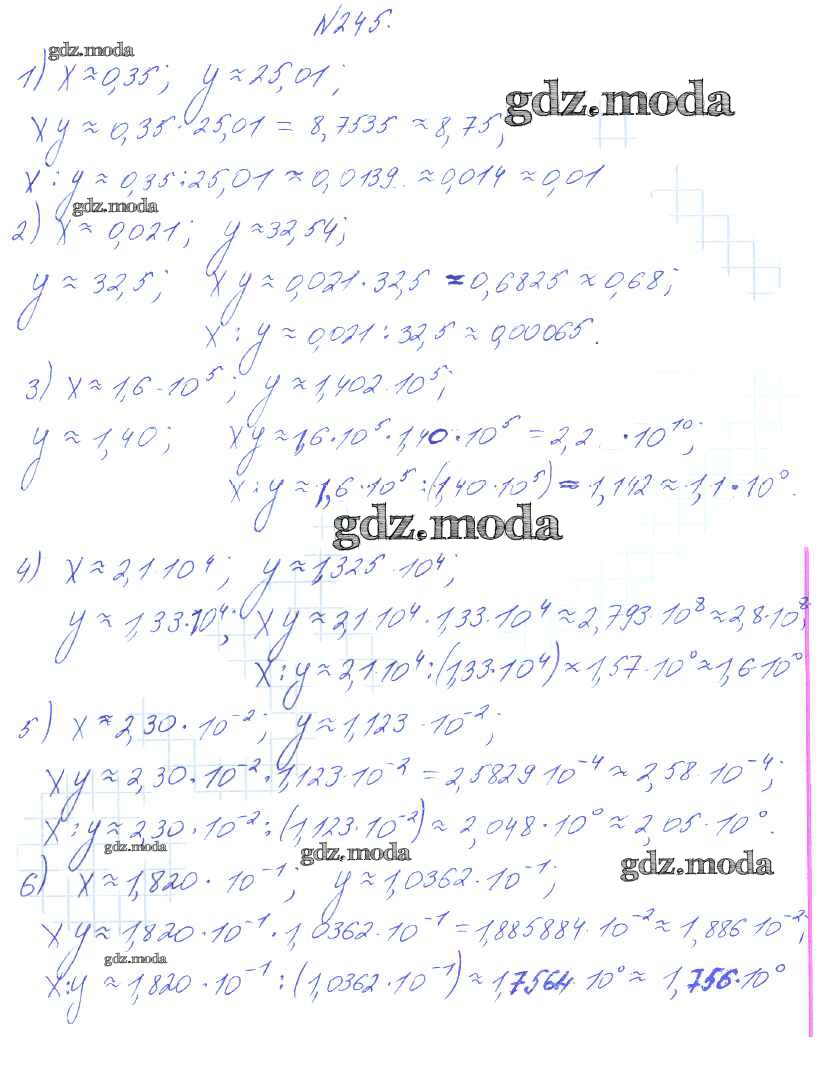 N245.
gdz.moda
1) x ≈ 0,35; y ≈ 25,01;
gdz.moda
xy ≈ 0,35 · 25,01 = 8,7535 ≈ 8,75;
x : y ≈ 0,35 : 25,01 ≈ 0,0139.. ≈ 0,014 ≈ 0,01
gdz.moda
2) x ≈ 0,021; y ≈ 32,54;
y ≈ 32,5; xy ≈ 0,021 · 32,5 ≈ 0,6825 ≈ 0,68;
x : y ≈ 0,021 : 32,5 ≈ 0,00065.
3) x ≈ 1,6 · 10⁵; y ≈ 1,402 · 10⁵;
y ≈ 1,40; xy ≈ 1,6 · 10⁵ · 1,40 · 10⁵ = 2,2 · 10¹⁰;
x : y ≈ 1,6 · 10⁵ : (1,40 · 10⁵) = 1,142 ≈ 1,1 · 10⁰.
gdz.moda
4) x ≈ 2,1 10⁴; y ≈ 1,325 · 10⁴;
y ≈ 1,33 · 10⁴; xy ≈ 2,1 10⁴ · 1,33 · 10⁴ ≈ 2,793 · 10⁸ ≈ 2,8 · 10⁸;
x : y ≈ 2,1 · 10⁴ : (1,33 · 10⁴) ≈ 1,57 · 10⁰ ≈ 1,6 · 10⁰
5) x ≈ 2,30 · 10⁻²; y ≈ 1,123 · 10⁻²;
xy ≈ 2,30 · 10⁻² · 1,123 · 10⁻² = 2,5829 10⁻⁴ ≈ 2,58 · 10⁻⁴;
x : y ≈ 2,30 · 10⁻² : (1,123 · 10⁻²) ≈ 2,048 · 10⁰ ≈ 2,05 · 10⁰.
gdz.moda
gdz.moda
gdz.moda
6) x ≈ 1,820 · 10⁻¹; y ≈ 1,0362 · 10⁻¹;
xy ≈ 1,820 · 10⁻¹ · 1,0362 · 10⁻¹ = 1,885884 · 10⁻² ≈ 1,886 10⁻²;
gdz.moda
x : y ≈ 1,820 · 10⁻¹ : (1,0362 · 10⁻¹) ≈ 1,7564 · 10⁰ ≈ 1,756 · 10⁰